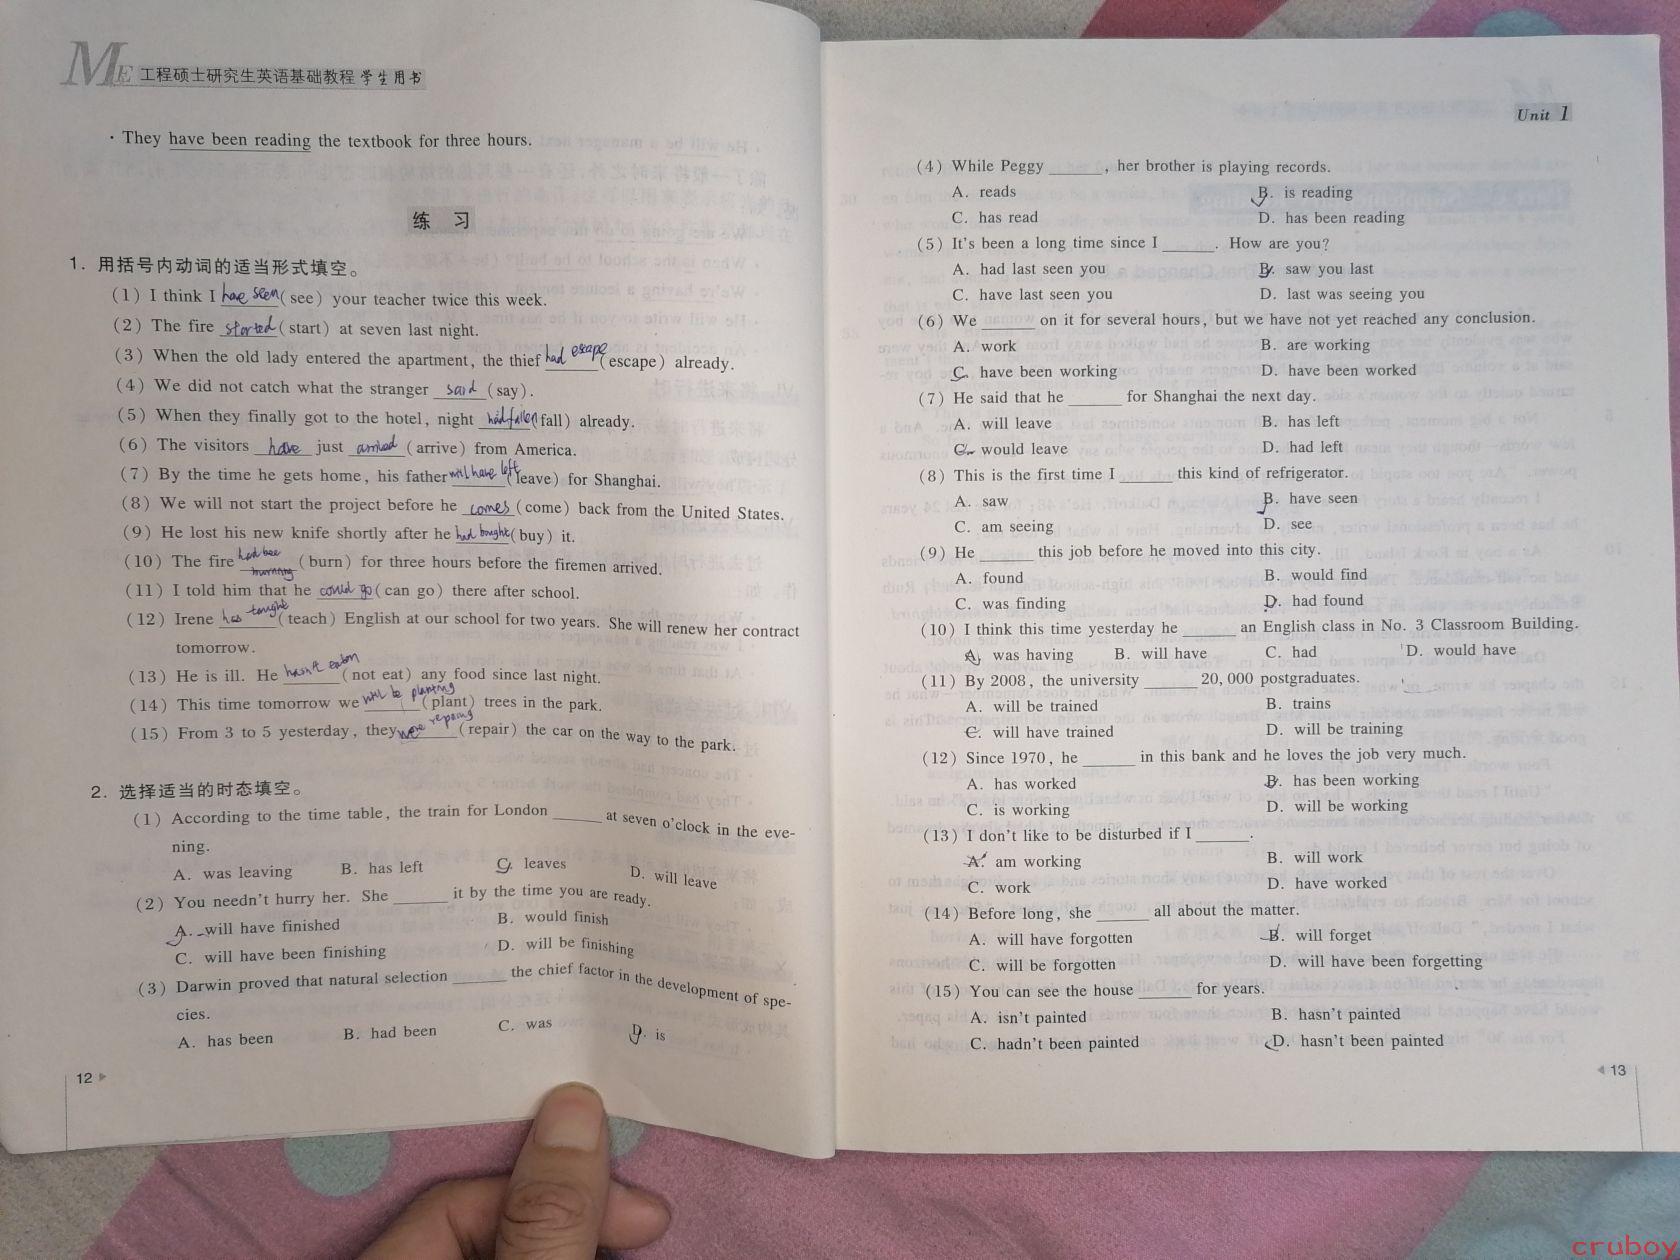 ME 工程硕士研究生英语基础教程 学生用书
· They have been reading the textbook for three hours.
练 习
1. 用括号内动词的适当形式填空。
(1) I think I have seen (see) your teacher twice this week.
(2) The fire started (start) at seven last night.
(3) When the old lady entered the apartment, the thief had escape (escape) already.
(4) We did not catch what the stranger said (say).
(5) When they finally got to the hotel, night had fallen (fall) already.
(6) The visitors have just arrived (arrive) from America.
(7) By the time he gets home, his father will have left (leave) for Shanghai.
(8) We will not start the project before he comes (come) back from the United States.
(9) He lost his new knife shortly after he had bought (buy) it.
(10) The fire had bee burning (burn) for three hours before the firemen arrived.
(11) I told him that he could go (can go) there after school.
(12) Irene has taught (teach) English at our school for two years. She will renew her contract
tomorrow.
(13) He is ill. He hasn't eaten (not eat) any food since last night.
(14) This time tomorrow we will be planting (plant) trees in the park.
(15) From 3 to 5 yesterday, they were repairing (repair) the car on the way to the park.
2. 选择适当的时态填空。
(1) According to the time table, the train for London ______ at seven o'clock in the eve-
ning.
A. was leaving B. has left C. leaves D. will leave
(2) You needn't hurry her. She ______ it by the time you are ready.
A. will have finished B. would finish
C. will have been finishing D. will be finishing
(3) Darwin proved that natural selection ______ the chief factor in the development of spe-
cies.
A. has been B. had been C. was D. is
12
Unit 1
(4) While Peggy ______, her brother is playing records.
A. reads B. is reading
C. has read D. has been reading
(5) It's been a long time since I ______. How are you?
A. had last seen you B. saw you last
C. have last seen you D. last was seeing you
(6) We ______ on it for several hours, but we have not yet reached any conclusion.
A. work B. are working
C. have been working D. have been worked
(7) He said that he ______ for Shanghai the next day.
A. will leave B. has left
C. would leave D. had left
(8) This is the first time I ______ this kind of refrigerator.
A. saw B. have seen
C. am seeing D. see
(9) He ______ this job before he moved into this city.
A. found B. would find
C. was finding D. had found
(10) I think this time yesterday he ______ an English class in No. 3 Classroom Building.
A. was having B. will have C. had D. would have
(11) By 2008, the university ______ 20,000 postgraduates.
A. will be trained B. trains
C. will have trained D. will be training
(12) Since 1970, he ______ in this bank and he loves the job very much.
A. has worked B. has been working
C. is working D. will be working
(13) I don't like to be disturbed if I ______.
A. am working B. will work
C. work D. have worked
(14) Before long, she ______ all about the matter.
A. will have forgotten B. will forget
C. will be forgotten D. will have been forgetting
(15) You can see the house ______ for years.
A. isn't painted B. hasn't painted
C. hadn't been painted D. hasn't been painted
13
cruboy